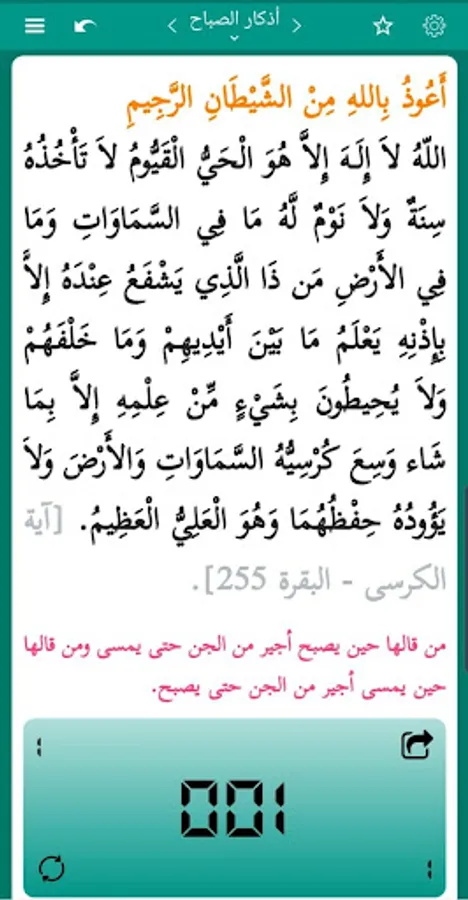 أذكار الصباح
أَعُوذُ بِاللهِ مِنْ الشَّيْطَانِ الرَّجِيمِ
اللّهُ لاَ إِلَـهَ إِلاَّ هُوَ الْحَيُّ الْقَيُّومُ لاَ تَأْخُذُهُ
سِنَةٌ وَلاَ نَوْمٌ لَّهُ مَا فِي السَّمَاوَاتِ وَمَا
فِي الأَرْضِ مَن ذَا الَّذِي يَشْفَعُ عِنْدَهُ إِلاَّ
بِإِذْنِهِ يَعْلَمُ مَا بَيْنَ أَيْدِيهِمْ وَمَا خَلْفَهُمْ
وَلاَ يُحِيطُونَ بِشَيْءٍ مِّنْ عِلْمِهِ إِلاَّ بِمَا
شَاء وَسِعَ كُرْسِيُّهُ السَّمَاوَاتِ وَالأَرْضَ وَلاَ
يَؤُودُهُ حِفْظُهُمَا وَهُوَ الْعَلِيُّ الْعَظِيمُ. [آية
الكرسى - البقرة 255].
من قالها حين يصبح أجير من الجن حتى يمسى ومن قالها
حين يمسى أجير من الجن حتى يصبح.
1
001
1